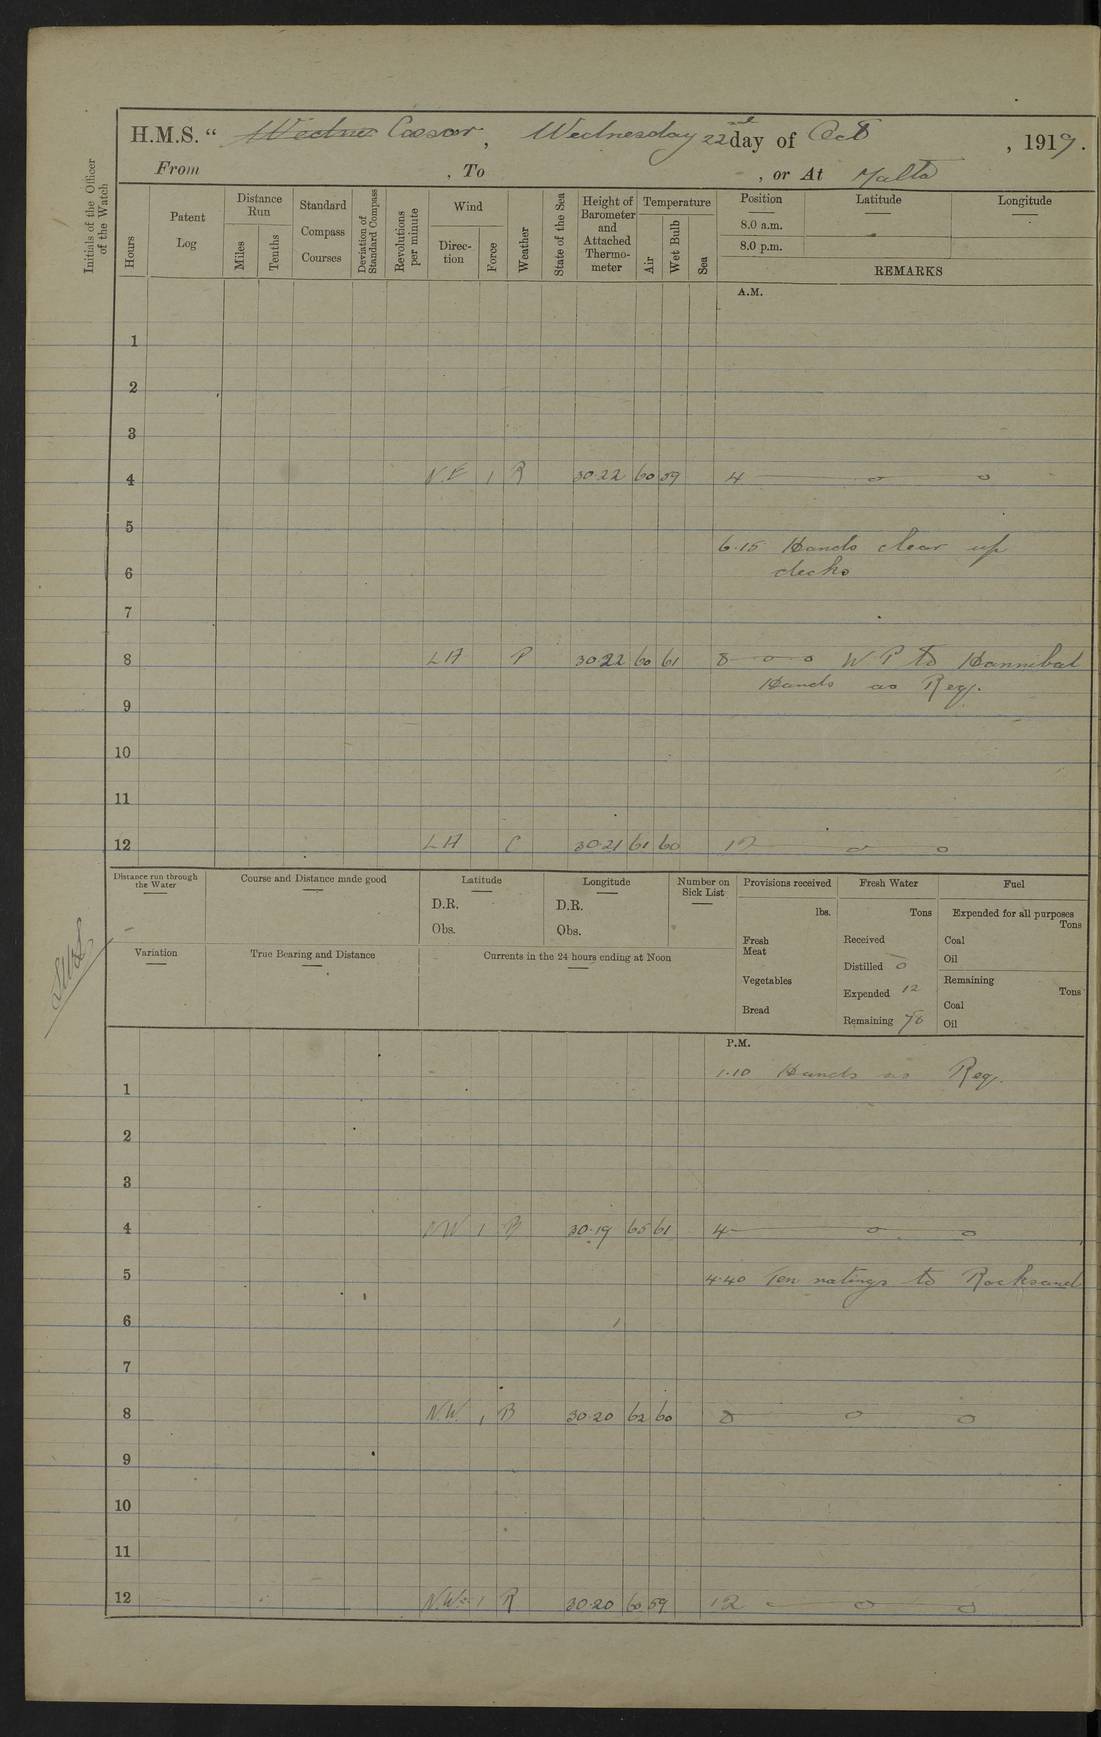 H.M.S. “ Caesar, Wednesday 22nd day of Oct, 1919.
From , To , or At Malta
Initials of the Officer of the Watch
Hours
Patent Log
Distance Run
Miles
Tenths
Standard Compass Courses
Deviation of Standard Compass
Revolutions per minute
Wind
Direction
Force
Weather
State of the Sea
Height of Barometer and Attached Thermometer
Temperature
Air
Wet Bulb
Sea
Position Latitude Longitude
8.0 a.m.
8.0 p.m.
REMARKS
A.M.
1
2
3
4 N.E 1 R 30.22 60 59 4 o o
5
6.15 Hands clear up
6 decks
7
8 LA 30.22 60 61 8 o o W P to Hannibal
Hands as Req.
9
10
11
12 LA C 30.21 61 60 12 o o
Distance run through the Water
Course and Distance made good
Latitude
D.R.
Obs.
Longitude
D.R.
Obs.
Number on Sick List
Provisions received
lbs.
Fresh Meat
Vegetables
Bread
Fresh Water
Tons
Received
Distilled 0
Expended 12
Remaining 78
Fuel
Expended for all purposes
Tons
Coal
Oil
Remaining
Tons
Coal
Oil
Variation
True Bearing and Distance
Currents in the 24 hours ending at Noon
P.M.
1.10 Hands as Req.
1
2
3
4 NW 1 B 30.19 65 61 4 o o
5 4.40 Ten ratings to Rocksand
6
7
8 N.W. 1 B 30.20 62 60 8 o o
9
10
11
12 N.W. 1 R 30.20 60 59 12 o o